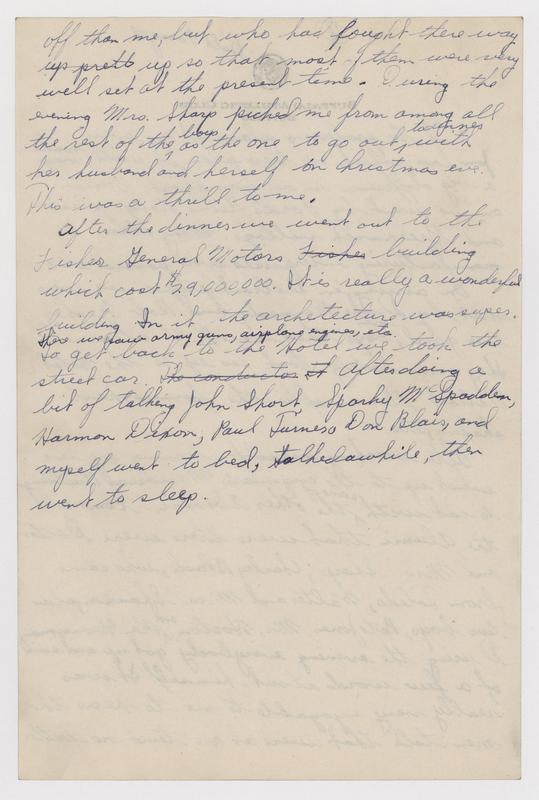 off than me, but who had fought there way
up prett up so that most of them were very
well set at the present time. During the
evening Mrs. Sharp picked me from among all
the rest of the boys, as the one to go out to dinner, with
her husband and herself on Christmas eve.
This was a thrill to me.
After the dinner we went out to the
Fisher General Motors Fisher building
which cost $29,000,000. It is really a wonderful
building In it the archetecture was super.
There we saw army guns, airplane engines, etc.
To get back to the Hotel we took the
street car. The conductor st After doing a
bit of talking John Short, Sparky McSpadden,
Harmon Dixon, Paul Don Blair, and
myself went to bed, talked awhile, then
went to sleep.